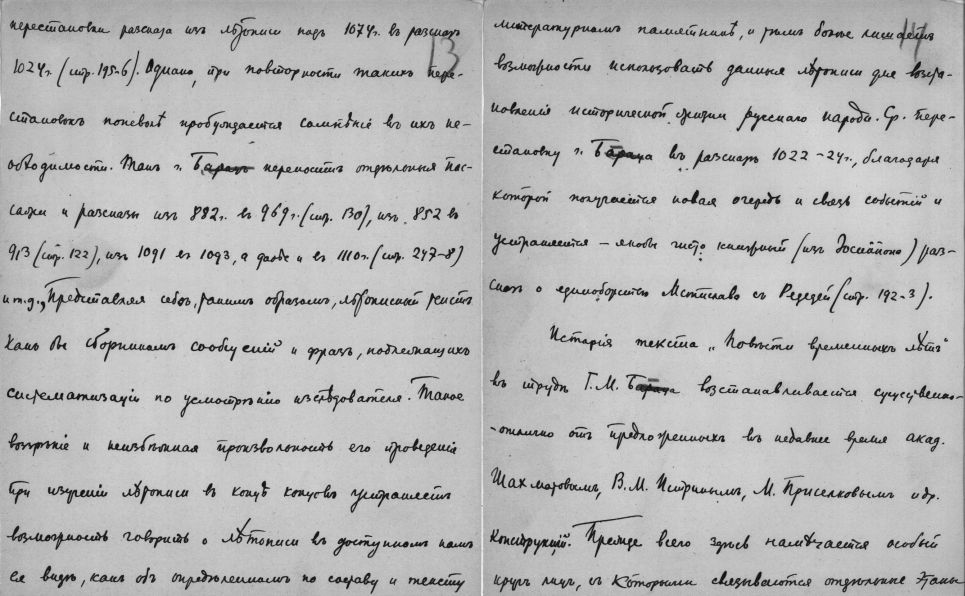 13
перестановки разсказа изъ лѣтописи подъ 1074г. въ разсказъ
1024г. (стр. 195-6). Однако, при повторности такихъ пере-
становокъ поневолѣ пробуждается сомнѣніе въ ихъ не-
обходимости. Такъ г. Барацъ переноситъ отдѣльныя пас-
сажи и разсказы изъ 882г. въ 969г. (стр. 130), изъ 852 въ
913 (стр. 122), изъ 1091 въ 1093, а далѣе и въ 1110г. (стр. 247-8)
и т.д., Представляя себѣ, такимъ образомъ, лѣтописный текстъ
какъ бы сборникомъ сообщеній и фразъ, подлежащихъ
систематизаціи по усмотрѣнію изслѣдователя. Такое
воззрѣніе и неизбѣжная произвольность его проведенія
при изученіи лѣтописи въ концѣ концовъ устраняетъ
возможность говорить о лѣтописи въ доступномъ намъ
ея видѣ, какъ объ опредѣленномъ по составу и тексту
14
литературномъ памятникѣ, и тѣмъ болѣе лишаетъ
возможности использовать данныя лѣтописи для возста-
новленія исторической жизни русскаго народа. Ср. пере-
становку г. Бараца въ разсказъ 1022-24г., благодаря
которой получается новая очередь и связь событій и
устраняется — якобы чисто книжный (изъ ) раз-
сказъ о единоборствѣ Мстислава съ Редедей (стр. 192-3).
Исторія текста „Повѣсти временныхъ лѣтъ"
въ трудѣ Г.М. Бараца возстанавливается существенно-
-отлично отъ предложенныхъ въ недавнее время акад.
Шахматовымъ, В.М. Истринымъ, М. Приселковымъ и др.
конструкцій. Прежде всего здѣсь намѣчается особый
кругъ лицъ, съ которыми связываются отдѣльные этапы